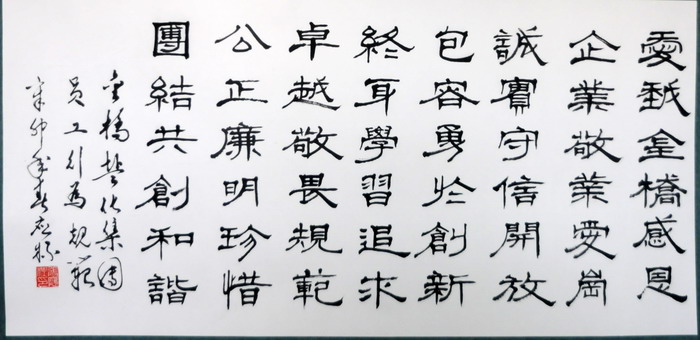 愛我金橋感恩
企業敬業愛崗
誠實守信開放
包容勇於創新
終身學習追求
卓越敬畏規範
公正廉明珍惜
團結共創和諧
金橋化集團
員工行為規範
辛卯年春